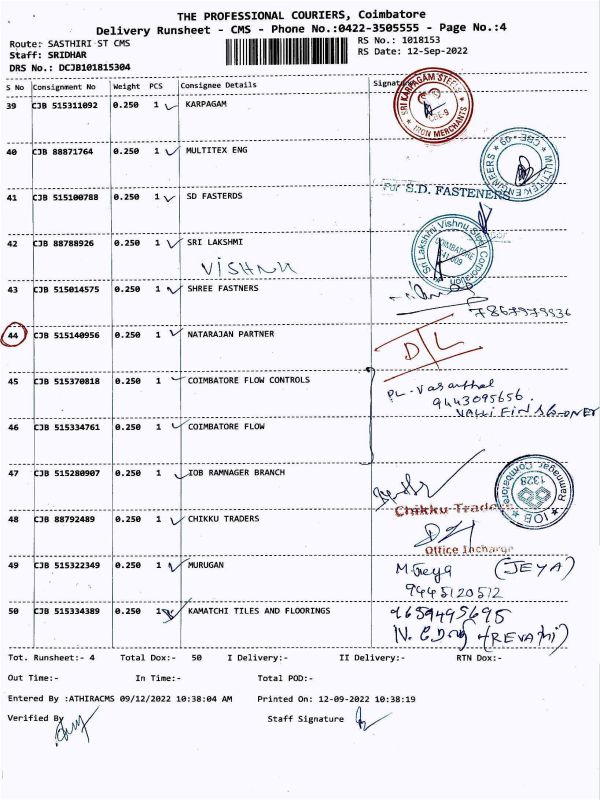 THE PROFESSIONAL COURIERS, Coimbatore
Delivery Runsheet - CMS - Phone No.:0422-3505555 - Page No.:4
Route: SASTHIRI ST CMS RS No.: 1018153
Staff: SRIDHAR RS Date: 12-Sep-2022
DRS No.: DCJB101815304
S No Consignment No Weight PCS Consignee Details Signature
39 CJB 515311092 0.250 1 KARPAGAM
SRI KARPAGAM STEELS CBE-9 IRON MERCHANTS
40 CJB 88871764 0.250 1 MULTITEX ENG
MULTITEK ENGINEERS CBE-09
41 CJB 515100788 0.250 1 SD FASTERDS
For S.D. FASTENERS
42 CJB 88788926 0.250 1 SRI LAKSHMI
VISHNU
Sri Lakshmi Vishnu Steel Corporation COIMBATORE
43 CJB 515014575 0.250 1 SHREE FASTNERS
7867979936
44 CJB 515140956 0.250 1 NATARAJAN PARTNER
D/L
45 CJB 515370818 0.250 1 COIMBATORE FLOW CONTROLS
PL - Vasanthal
9443095656.
46 CJB 515334761 0.250 1 COIMBATORE FLOW
47 CJB 515280907 0.250 1 IOB RAMNAGER BRANCH
IOB 1328 Ramnagar Coimbatore
Chikku Traders
48 CJB 88792489 0.250 1 CHIKKU TRADERS
Office Incharge
49 CJB 515322349 0.250 1 MURUGAN
M. Jeya (JEYA)
9445120512
50 CJB 515334389 0.250 1 KAMATCHI TILES AND FLOORINGS
9659495695
(REVATHI)
Tot. Runsheet:- 4 Total Dox:- 50 I Delivery:- II Delivery:- RTN Dox:-
Out Time:- In Time:- Total POD:-
Entered By :ATHIRACMS 09/12/2022 10:38:04 AM Printed On: 12-09-2022 10:38:19
Verified By Staff Signature